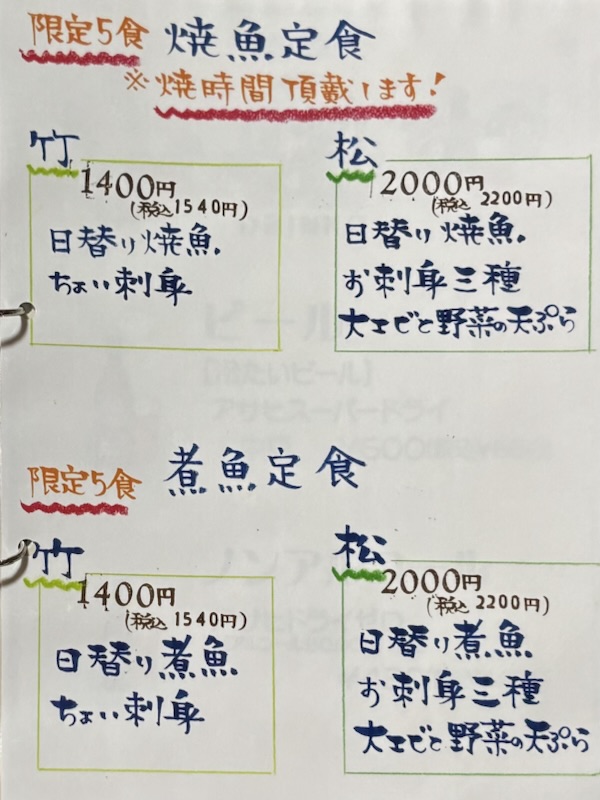 限定5食 焼魚定食
※焼時間頂戴します!
竹
1400円
(税込1540円)
日替り焼魚.
ちょい刺身
松
2000円
(税込2200円)
日替り焼魚.
お刺身三種
大エビと野菜の天ぷら
限定5食 煮魚定食
竹
1400円
(税込1540円)
日替り煮魚
ちょい刺身
松
2000円
(税込2200円)
日替り煮魚
お刺身三種
大エビと野菜の天ぷら